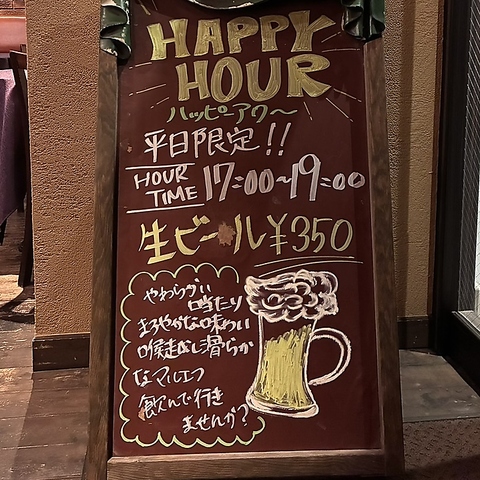 HAPPY
HOUR
ハッピーアワ〜
平日限定!!
HOUR
TIME 17:00~19:00
生ビール¥350
やわらかい
口当たり
まろやかな味わい
喉越し滑らか
なマルエフ
飲んで行き
ませんか?